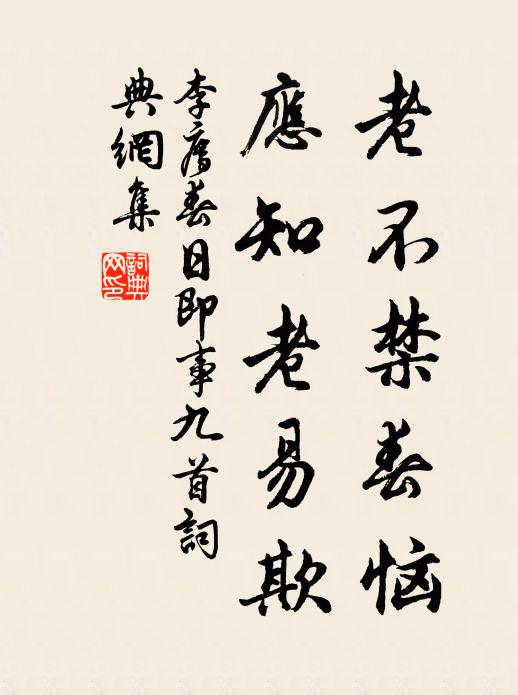 老不禁春恼
應知老易欺
李廌春日即事九首詞
典網集
詞典網印